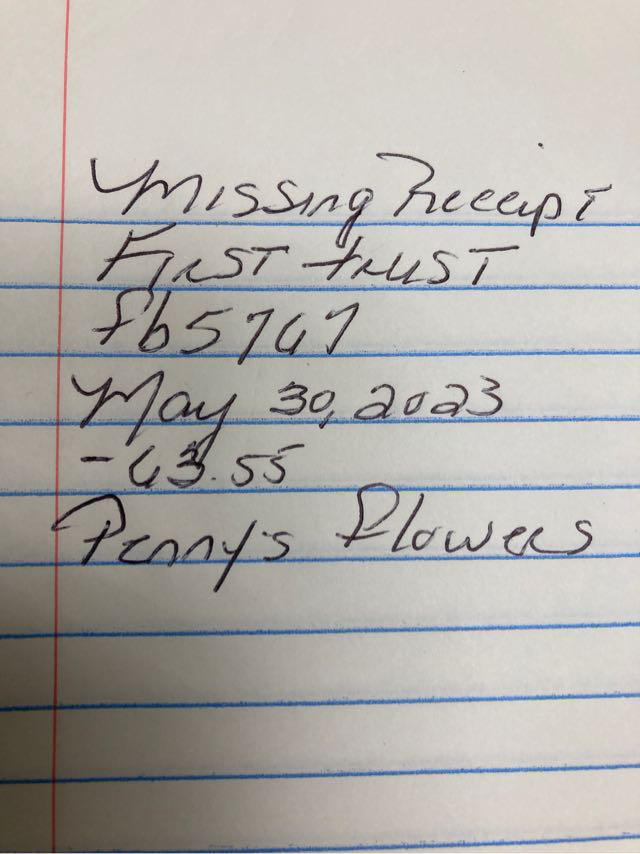 Missing Receipt
First trust
fb5767
May 30, 2023
-63.55
Penny's Flowers